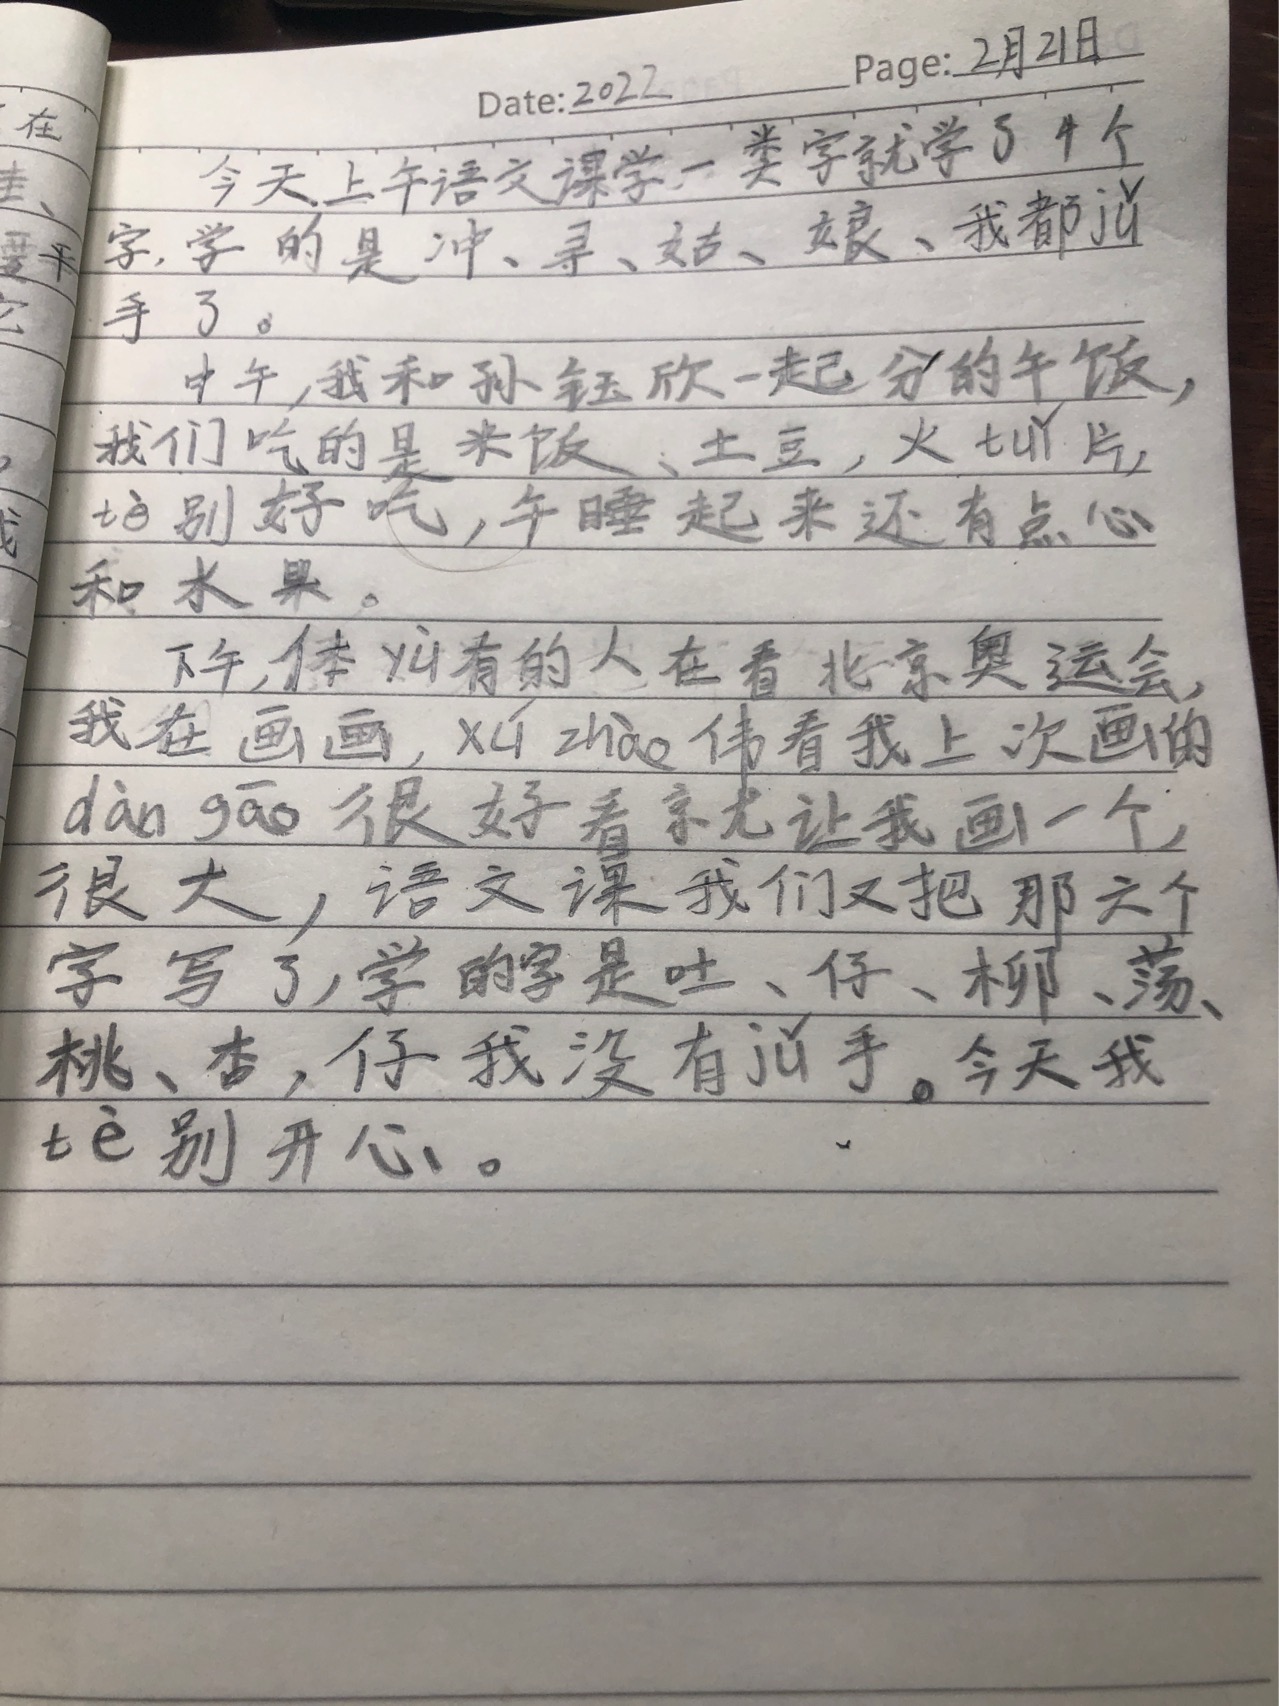 Date: 2022 Page: 2月21日
今天上午语文课学一类字就学了4个
字,学的是冲、寻、姑、娘、我都jǔ
手了。
中午,我和孙钰欣一起分的午饭,
我们吃的是米饭、土豆,火tuǐ片,
tè别好吃,午睡起来还有点心
和水果。
下午,体yù有的人在看北京奥运会,
我在画画,xú zhào伟看我上次画的
dàn gāo很好看就让我画一个,
很大,语文课我们又把那六个
字写了,学的字是吐、仔、柳、荡、
桃、杏,仔我没有jǔ手。今天我
tè别开心。